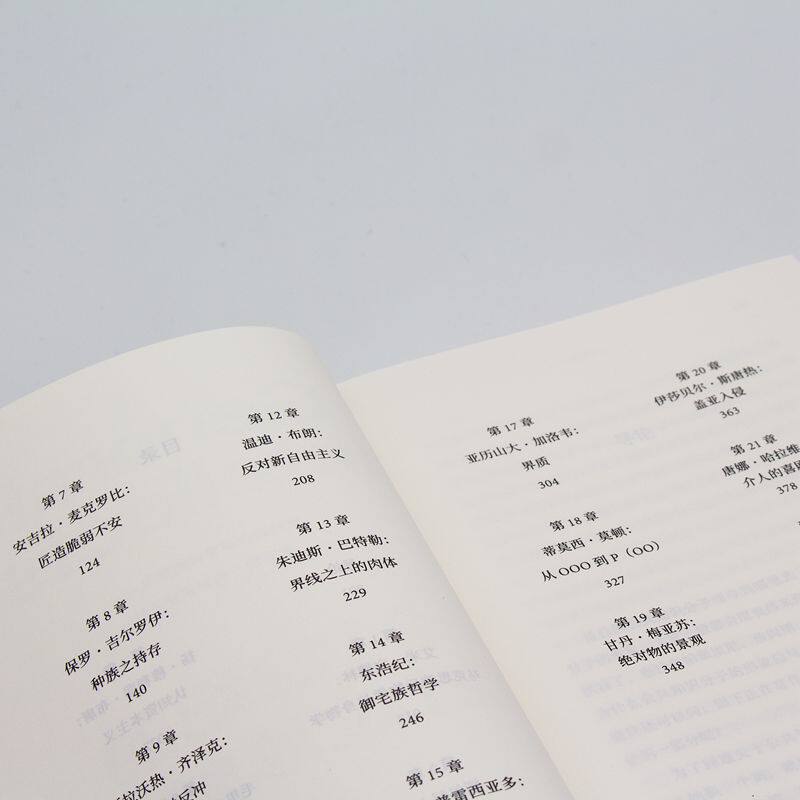 第 7 章
安吉拉·麦克罗比：
匠造脆弱不安
124
第 8 章
保罗·吉尔罗伊：
种族之持存
140
第 9 章
拉沃热·齐泽克：
反冲
第 12 章
温迪·布朗：
反对新自由主义
208
第 13 章
朱迪斯·巴特勒：
界线之上的肉体
229
第 14 章
东浩纪：
御宅族哲学
246
第 15 章
普雷西亚多：
第 17 章
亚历山大·加洛韦：
界质
304
第 18 章
蒂莫西·莫顿：
从 OOO 到 P（OO）
327
第 19 章
甘丹·梅亚苏：
绝对物的景观
348
第 20 章
伊莎贝尔·斯唐热：
盖亚入侵
363
第 21 章
唐娜·哈拉维
介人的喜剧
378